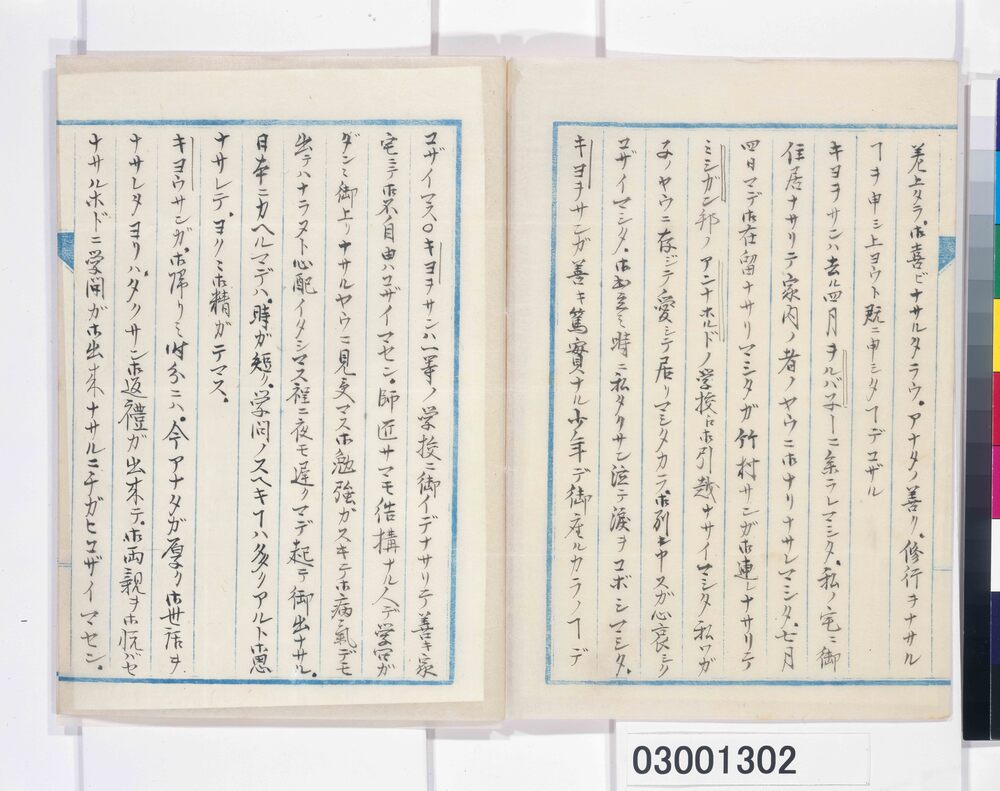 差上タラ。ホ喜ビナサルタラウ。アナタノ善ク。修行ヲナサル
ヿヲ申シ上ヨウト既ニ申シタヿデコザル
キヨヲサンハ去ル四月ヲルバ子ーニ来ラレマシタ。私ノ宅ニ御
住居ナサリテ家内ノ者ノヤウニホナリナサレマシタ。七月
四日マデホ在留ナサリマシタガ竹村サンガホ連レナサリテ
ミシガン邦ノアンナホルドノ学校ヘホ引越ナサイマシタ私ハガ
子ノヤウニ存ジテ愛シテ居リマシタカラ。ホ別
コザイマシタ。ホ出立ミ時ニ私タクサン泣テ涙ヲコボシマシタ。
キヨヲサンガ善キ篤實ナル少年デ御座ルカラノヿデ
コザイマス○キヨヲサンハ一等ノ学校ニ御イデナサリテ善キ家
宅ニテホ不自由ハコザイマセン。師匠サマモ結構ナル人デ学問ガ
ダンミ御上リナサルヤウニ見受マスホ勉強ガスキテホ病気デモ
出テハナラヌト心配イタシマス程ニ夜モ遅クマデ起テ御出ナサル。
日本ニカヘルマデハ。時ガ短ク。学問ノスヘキヿハ多クアルトホ思
ナサレテ。ヨクミホ精ガデマス。
キヨウサンガ。ホ帰リミ時分ニハ。今アナタガ厚クホ世話ヲ
ナサレタヨリハ。タクサンホ返禮ガ出来テ。ホ両親ヲホ悦バセ
ナサルホドニ学問ガホ出来ナサルニチガヒコザイマセン。
03001302